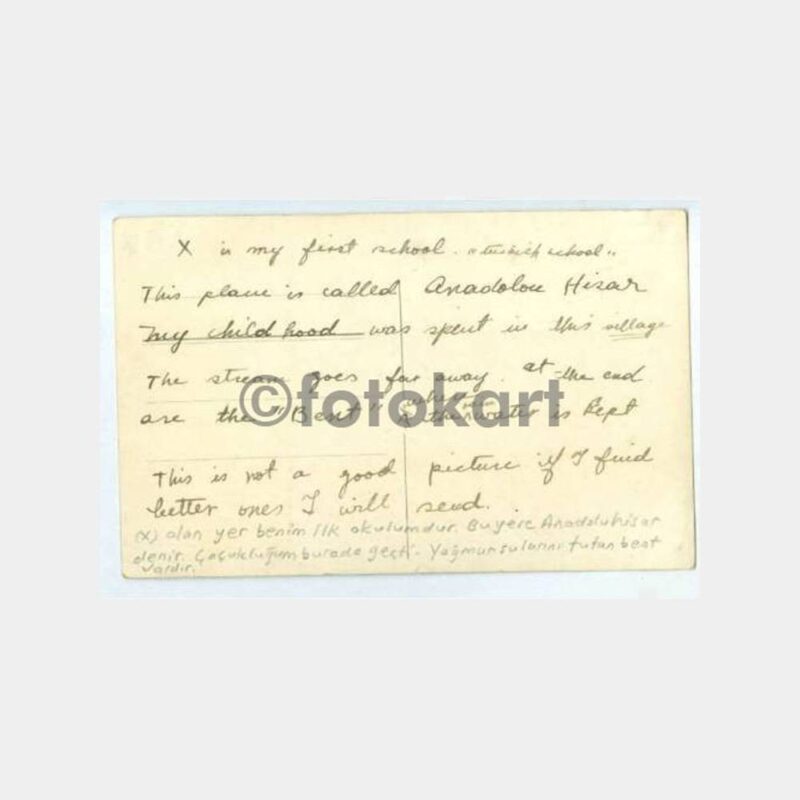 X is my first school. "turkish school"
This place is called Anadolou Hisar
my childhood was spent in this village
The stream goes far away. at the end
are the "Bent" where water is kept
©fotokart
This is not a good picture if I find
better ones I will send.
(X) olan yer benim ilk okulumdur. Bu yere Anadoluhisar
denir. Çocukluğum burada geçti. Yağmur sularını tutan bent
vardır.